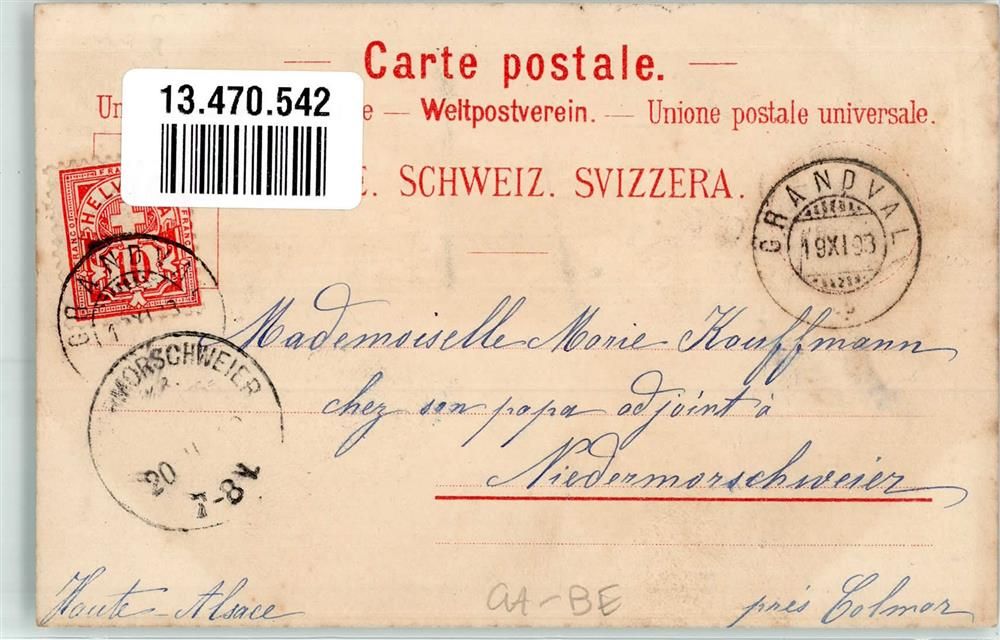 Carte postale.
13.470.542
Un e — Weltpostverein. — Unione postale universale.
E. SCHWEIZ. SVIZZERA.
FRANCO
HELV A
FRANCO
10
GRANDVAL
19 XI 93
GRANDV
MORSCHWEIER
20
7-8V
Mademoiselle Marie Kauffmann
chez son papa adjoint à
Niedermorschweier
Haute-Alsace
près Colmar
CA-BE